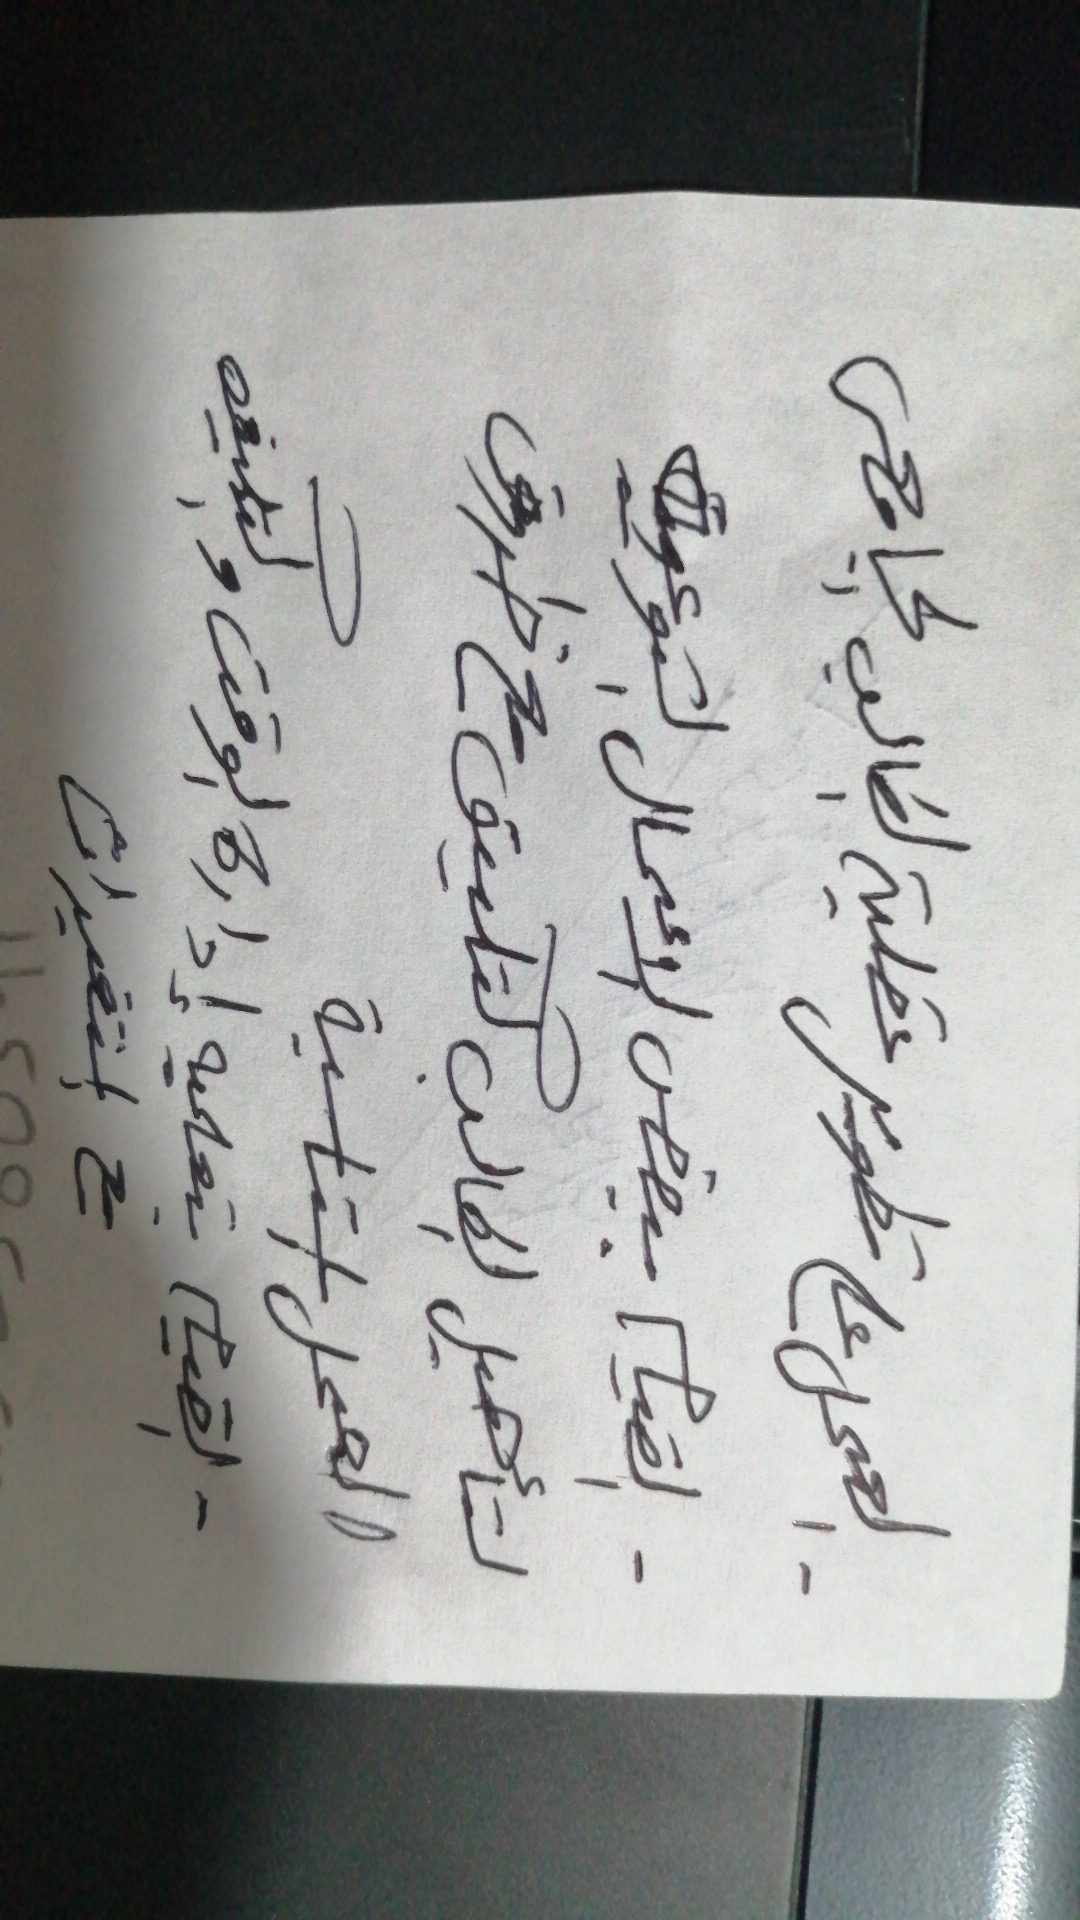 - العمل على تطوير عقلية الطالب الجامعى
- القيام ببعض الأعمال التوعوية
لتأهيل الطالب لتكييف مع ظروف
العمل المناسبة
- القيام بتعليم إدارة الوقت والتكيف
مع المتغيرات